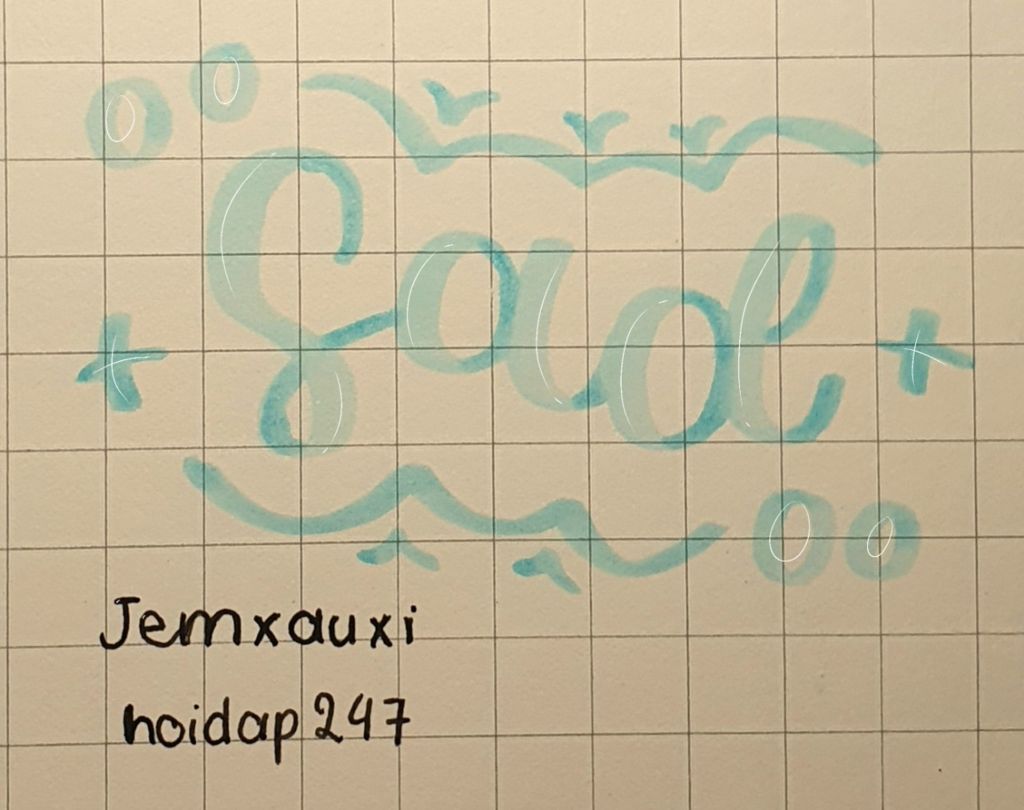 Saul
Jemxauxi
hoidap247